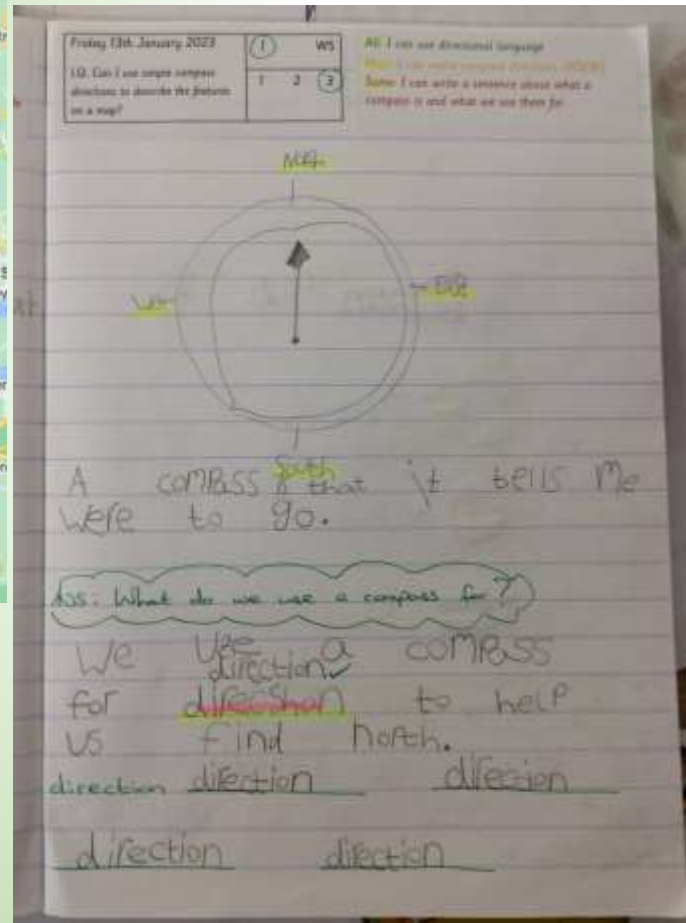 Friday 13th January 2023
I.Q. Can I use simple compass directions to describe the features on a map?
1 WS
1 2 3
All: I can use directional language
Some: I can write a sentence about what a compass is and what we use them for
North
East
South
A comPass is that it tells me
were to go.
Ass: What do we use a compass for?
We use a comPass
direction
for direcshon to help
us find north.
direction direction
direction direction